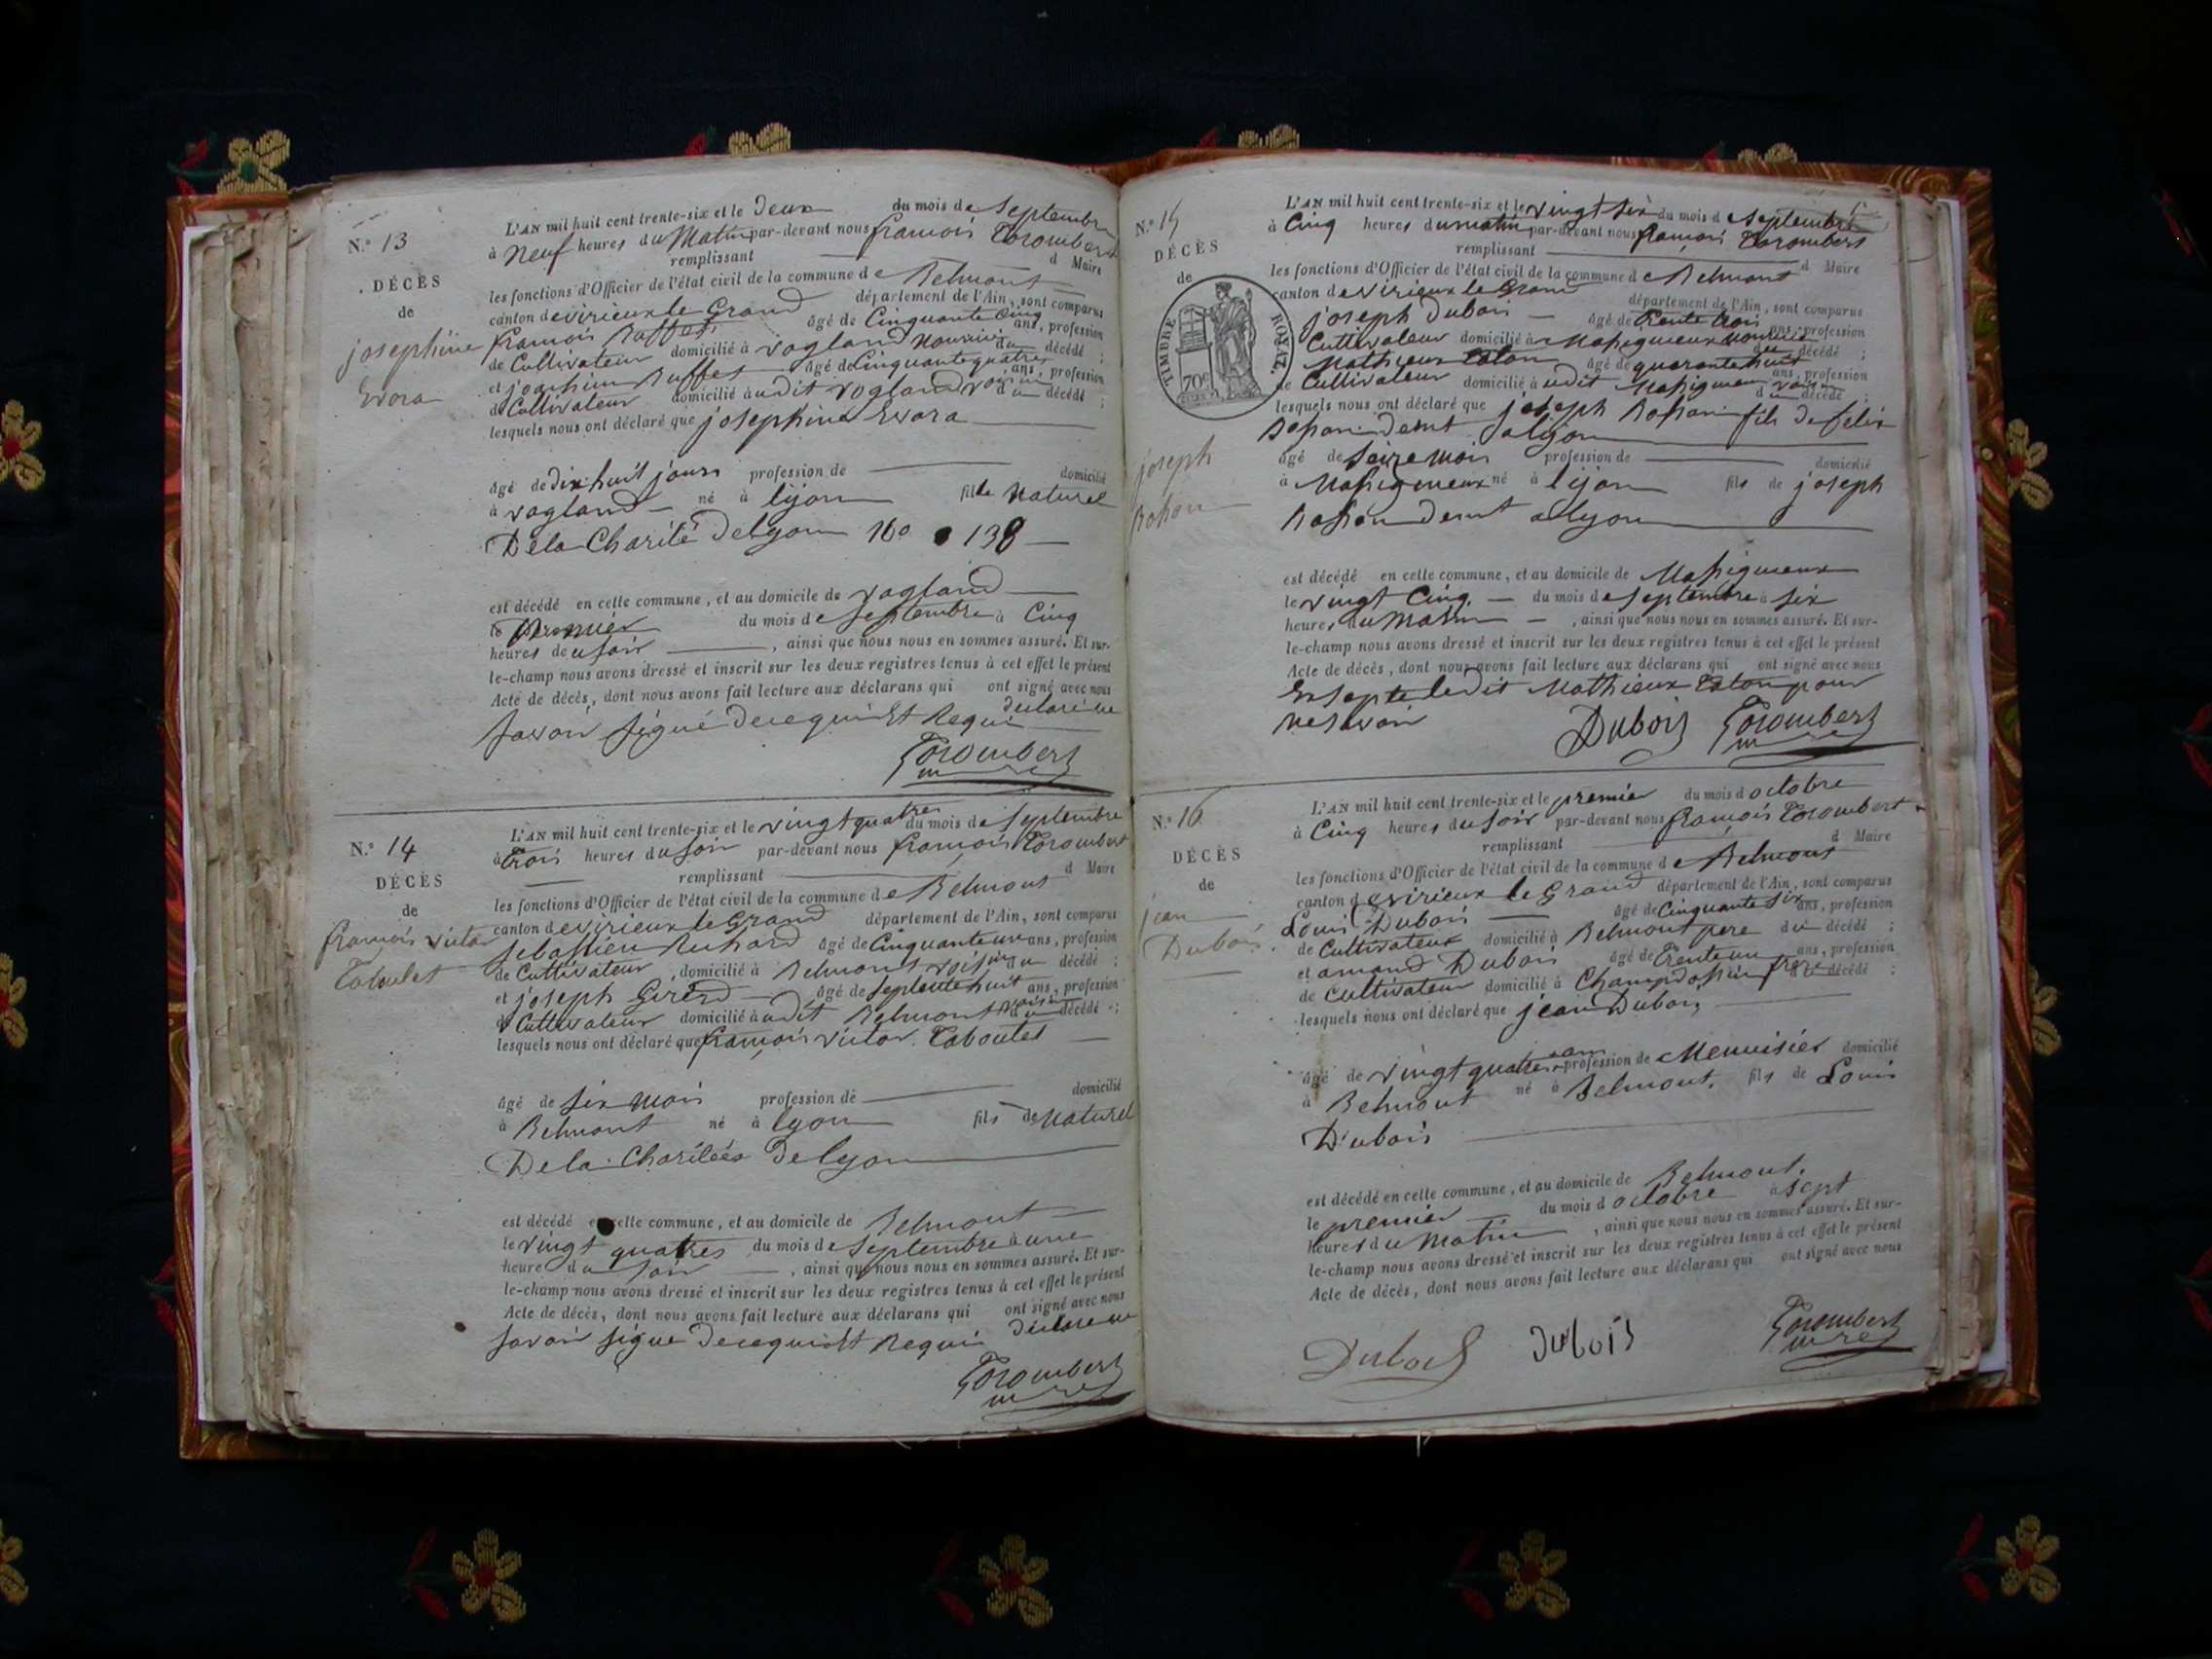 N.º 13
DÉCÈS
de
josephine
Evora
L'AN mil huit cent trente-six et le deux du mois de Septembre
à neuf heures du Matin par-devant nous françois Corombert
remplissant d Maire
les fonctions d'Officier de l'état civil de la commune de Belmont
canton de virieux le Grand département de l'Ain, sont comparus
françois Buffet âgé de Cinquante Cinq ans, profession
de Cultivateur domicilié à vogland nourricier du décédé ;
et joachim Buffet âgé de Cinquante quatre ans, profession
de Cultivateur domicilié àudit vogland voisin du décédé ;
lesquels nous ont déclaré que josephine Evora
âgé de dix huit jours profession de domicilié
à vogland né à lyon fille Naturel
De la Charité de lyon 160 138
est décédé en cette commune, et au domicile de vogland
le Premier du mois de Septembre à Cinq
heures du soir , ainsi que nous nous en sommes assuré. Et sur-
le-champ nous avons dressé et inscrit sur les deux registres tenus à cet effet le présent
Acte de décès, dont nous avons fait lecture aux déclarans qui ont signé avec nous
declaré ne
savoir signé de ce quist Requi
Corombert
N.º 14
DÉCÈS
de
françois victor
Taboulet
L'AN mil huit cent trente-six et le vingt quatres du mois de Septembre
à trois heures du soir par-devant nous françois Corombert
remplissant d Maire
les fonctions d'Officier de l'état civil de la commune de Belmont
canton de virieux le Grand département de l'Ain, sont comparus
sebastien Richard âgé de Cinquante un ans, profession
de Cultivateur domicilié à Belmont voisin du décédé ;
et joseph Girerd âgé de septente huit ans, profession
de Cultivateur domicilié àudit Belmont voisin du décédé ;
lesquels nous ont déclaré que françois victor Taboulet
âgé de six mois profession de domicilié
à Belmont né à lyon fils de Naturel
De la Charitées de lyon
est décédé en cette commune, et au domicile de Belmont
le vingt quatres du mois de Septembre à une
heure du soir , ainsi que nous nous en sommes assuré. Et sur-
le-champ nous avons dressé et inscrit sur les deux registres tenus à cet effet le présent
Acte de décès, dont nous avons fait lecture aux déclarans qui ont signé avec nous
declare ne
savoir signe de ce quist Requis
Corombert
N.º 15
DÉCÈS
de
TIMBRE ROYAL.
70c
joseph
Bohan
L'AN mil huit cent trente-six et le vingt six du mois de Septembre
à Cinq heures du matin par-devant nous françois Corombert
remplissant d Maire
les fonctions d'Officier de l'état civil de la commune de Belmont
canton de virieux le Grand département de l'Ain, sont comparus
joseph Dubois âgé de trente trois ans, profession
Cultivateur domicilié à Massigneux nourricier du décédé ;
Mathieux âgé de quarante huit ans, profession
de Cultivateur domicilié àudit Massigneux voisin du décédé ;
lesquels nous ont déclaré que joseph fils de felix
demt a lyon
âgé de seize mois profession de domicilié
à Massigneux né à lyon fils de joseph
demt a lyon
est décédé en cette commune, et au domicile de Massigneux
le vingt Cinq du mois de Septembre à six
heures du Matin , ainsi que nous nous en sommes assuré. Et sur-
le-champ nous avons dressé et inscrit sur les deux registres tenus à cet effet le présent
Acte de décès, dont nous avons fait lecture aux déclarans qui ont signé avec nous
Exsepte ledit Mathieux pour
ne savoir
Dubois Corombert
N.º 16
DÉCÈS
de
jean
Dubois
L'AN mil huit cent trente-six et le premier du mois d octobre
à Cinq heures du soir par-devant nous françois Corombert
remplissant d Maire
les fonctions d'Officier de l'état civil de la commune de Belmont
canton de virieux le Grand département de l'Ain, sont comparus
Louis Dubois âgé de Cinquante six ans, profession
de Cultivateur domicilié à Belmont pere du décédé ;
et amand Dubois âgé de trente un ans, profession
de cultivateur domicilié à Champdossin frere du décédé ;
lesquels nous ont déclaré que jean Dubois
âgé de vingt quatres ans profession de Menuisier domicilié
à Belmont né à Belmont, fils de Louis
Dubois
est décédé en cette commune, et au domicile de Belmont.
le premier du mois d octobre à sept
heures du Matin , ainsi que nous nous en sommes assuré. Et sur-
le-champ nous avons dressé et inscrit sur les deux registres tenus à cet effet le présent
Acte de décès, dont nous avons fait lecture aux déclarans qui ont signé avec nous
Dubois Dubois Corombert